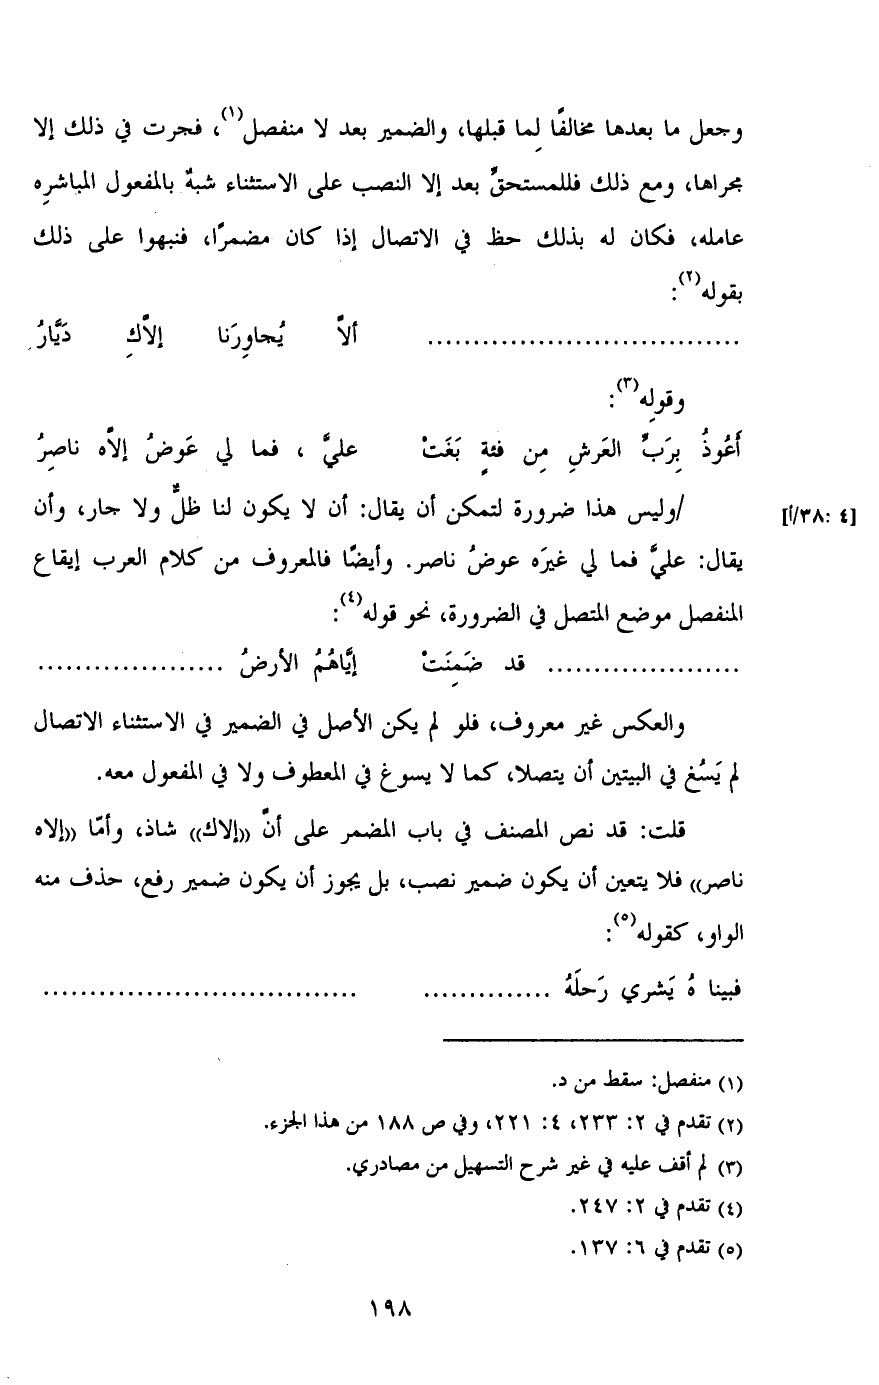 وجعل ما بعدها مخالفًا لِما قبلها، والضمير بعد لا منفصل(١)، فجرت في ذلك إلا
مجراها، ومع ذلك فللمستحقِّ بعد إلا النصب على الاستثناء شبهٌ بالمفعول المباشرِه
عامله، فكان له بذلك حظ في الاتصال إذا كان مضمرًا، فنبهوا على ذلك
بقوله(٢):
................................. ألاَّ يُجاوِرَنا إلاَّكِ دَيَّارُ
وقولِه(٣):
أَعُوذُ بِرَبِّ العَرشِ مِن فئةٍ بَغَتْ عليَّ ، فما لي عَوضُ إلاَّه ناصِرُ
/وليس هذا ضرورة لتمكن أن يقال: أن لا يكون لنا ظلٌّ ولا جار، وأن
[٤ :٣٨/أ]
يقال: عليَّ فما لي غيرَه عوضُ ناصر. وأيضًا فالمعروف من كلام العرب إيقاع
المنفصل موضع المتصل في الضرورة، نحو قوله(٤):
.................... قد ضَمِنَتْ إيَّاهُمُ الأرضُ ....................
والعكس غير معروف، فلو لم يكن الأصل في الضمير في الاستثناء الاتصال
لم يَسُغ في البيتين أن يتصلا، كما لا يسوغ في المعطوف ولا في المفعول معه.
قلت: قد نص المصنف في باب المضمر على أنَّ ((إلاك)) شاذ، وأمّا ((إلاه
ناصر)) فلا يتعين أن يكون ضمير نصب، بل يجوز أن يكون ضمير رفع، حذف منه
الواو، كقوله(٥):
فبينا هُ يَشري رَحلَهُ .............. .................................
(١) منفصل: سقط من د.
(٢) تقدم في ٢: ٢٣٣، ٤: ٢٢١، وفي ص ١٨٨ من هذا الجزء.
(٣) لم أقف عليه في غير شرح التسهيل من مصادري.
(٤) تقدم في ٢: ٢٤٧.
(٥) تقدم في ٦: ١٣٧.
١٩٨